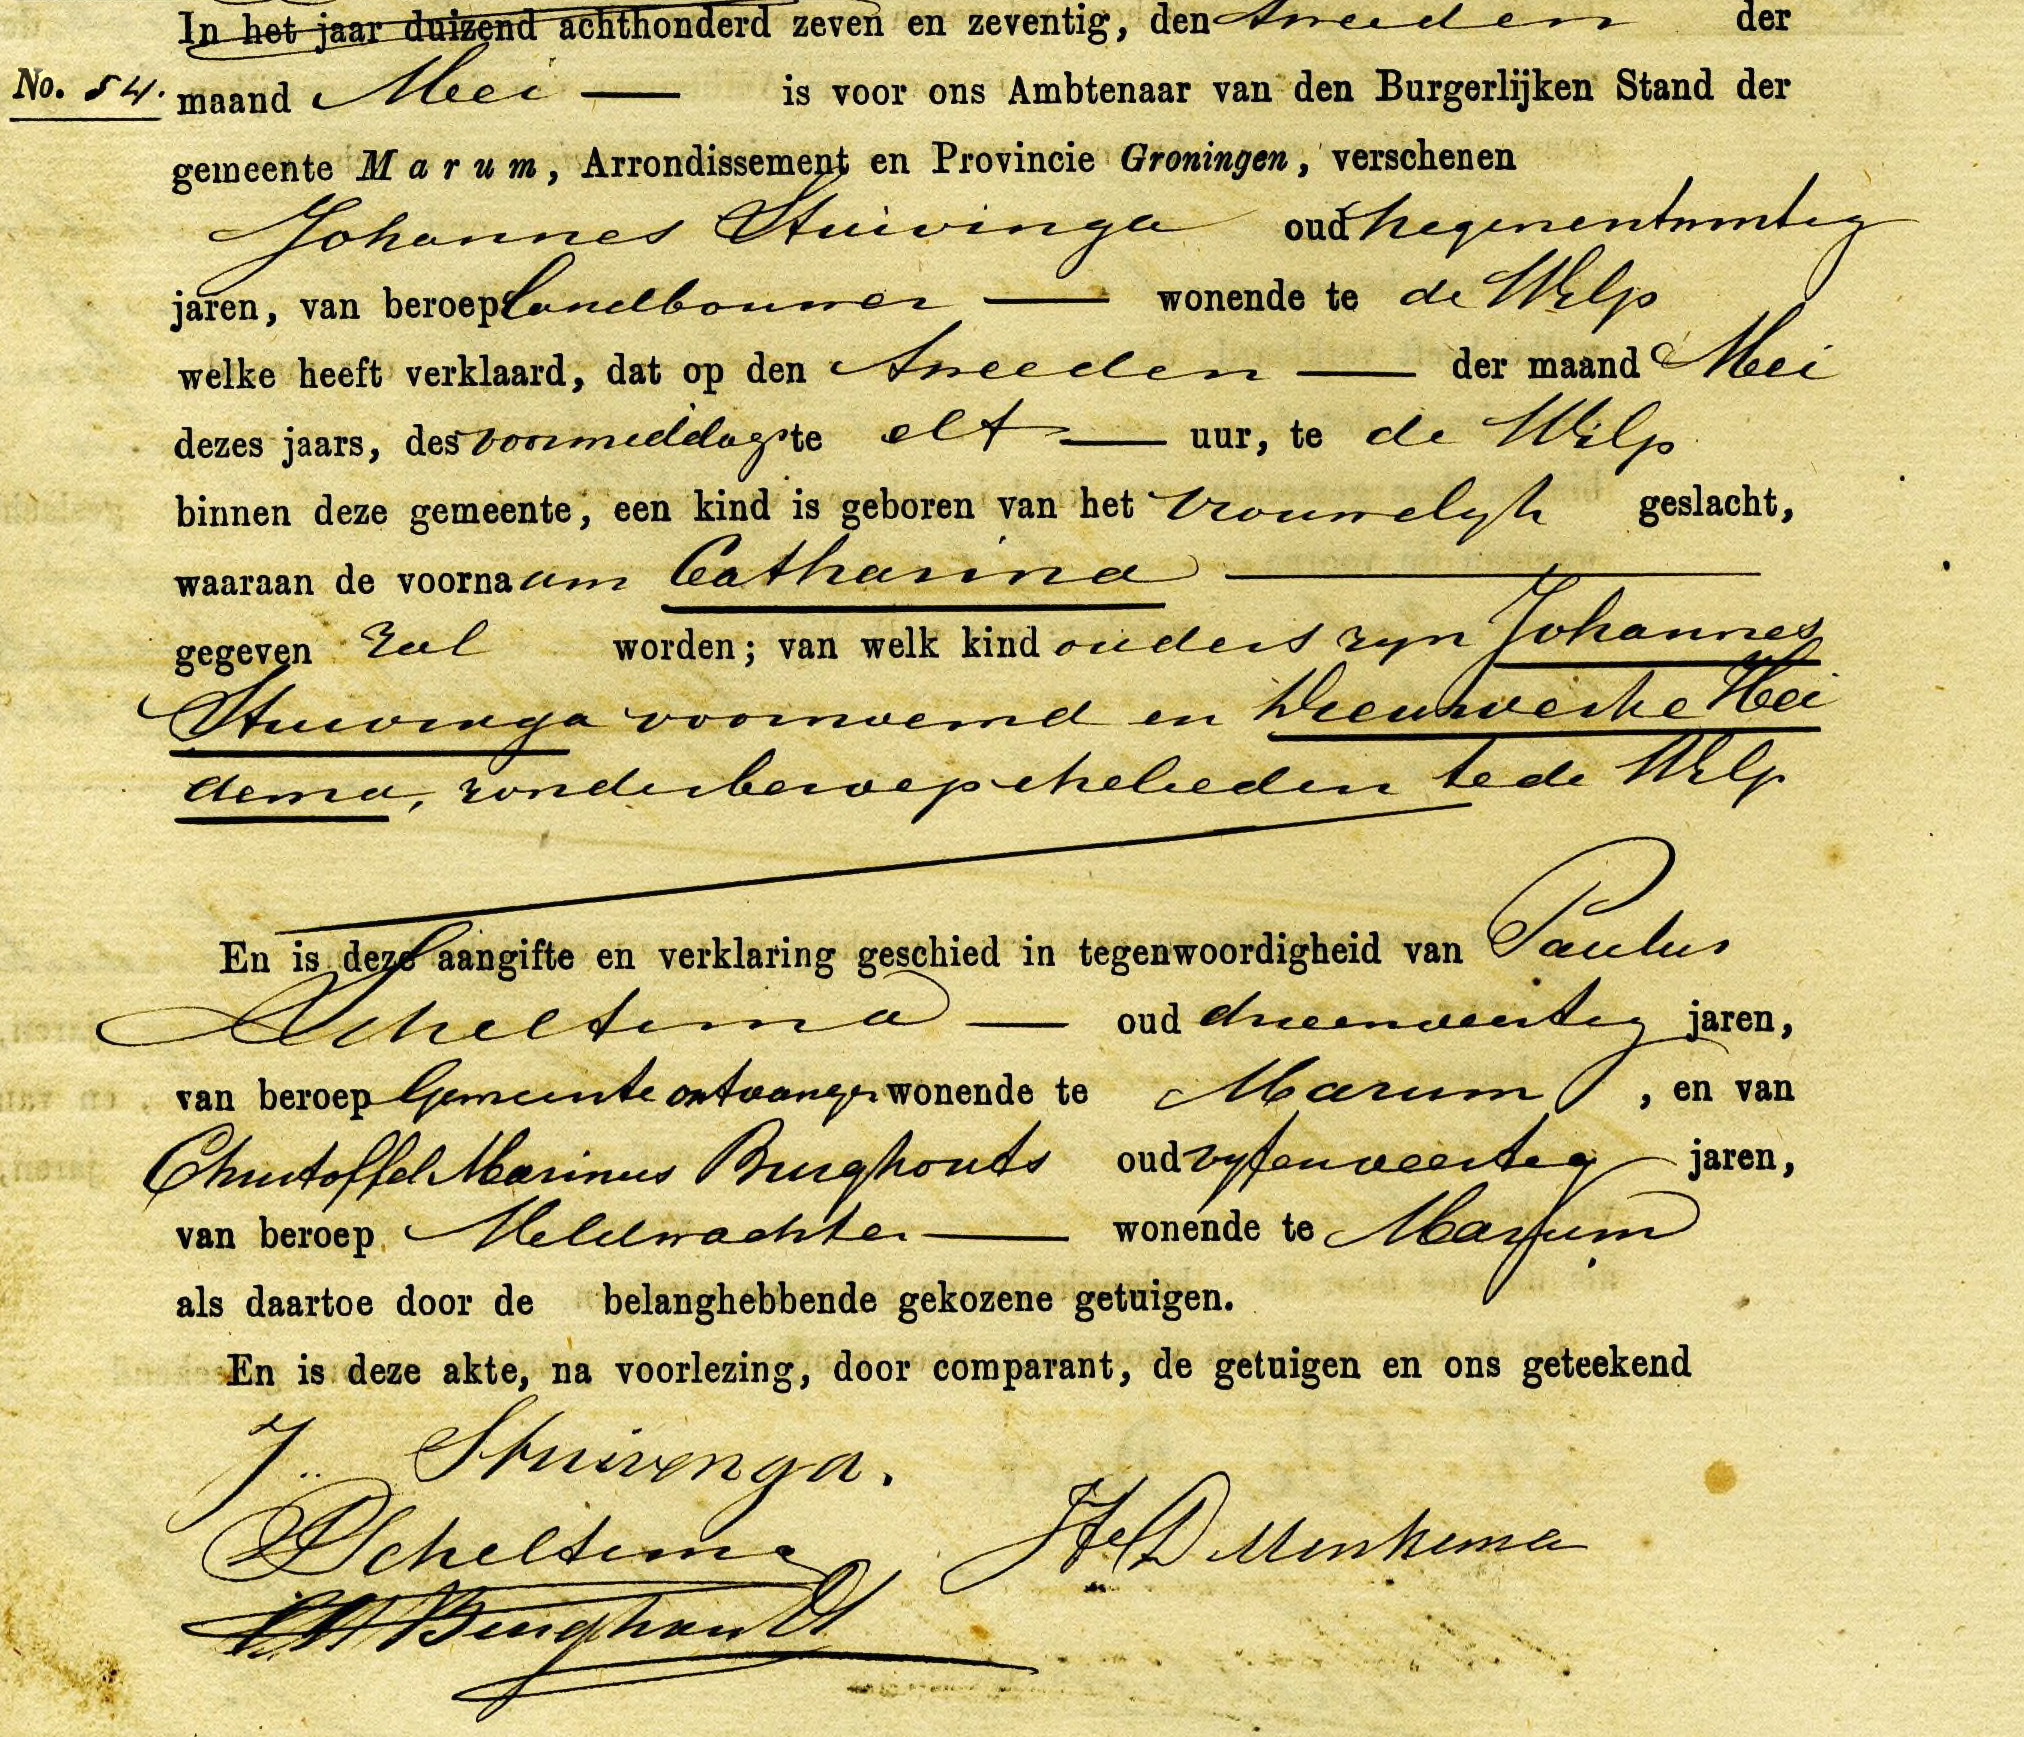 In het jaar duizend achthonderd zeven en zeventig, den tweeden der
No. 54. maand Mei is voor ons Ambtenaar van den Burgerlijken Stand der
gemeente Marum, Arrondissement en Provincie Groningen, verschenen
Johannes Stuivinga oud negenentwintig
jaren, van beroep landbouwer wonende te de Wilp
welke heeft verklaard, dat op den tweeden der maand Mei
dezes jaars, des voormiddags te elf uur, te de Wilp
binnen deze gemeente, een kind is geboren van het vrouwelyk geslacht,
waaraan de voornaam Catharina
gegeven zal worden; van welk kind ouders zyn Johannes
Stuivinga voornoemd en Dieuwerke Hei
dema, zonder beroep ehelieden te de Wilp
En is deze aangifte en verklaring geschied in tegenwoordigheid van Paulus
Scheltema oud drieenveertig jaren,
van beroep Gemeente ontvanger wonende te Marum, en van
Christoffel Marinus Burghouts oud vyfenveertig jaren,
van beroep Veldwachter wonende te Marum
als daartoe door de belanghebbende gekozene getuigen.
En is deze akte, na voorlezing, door comparant, de getuigen en ons geteekend
J. Stuivenga.
P Scheltema
Menkema
CM Burghoudt